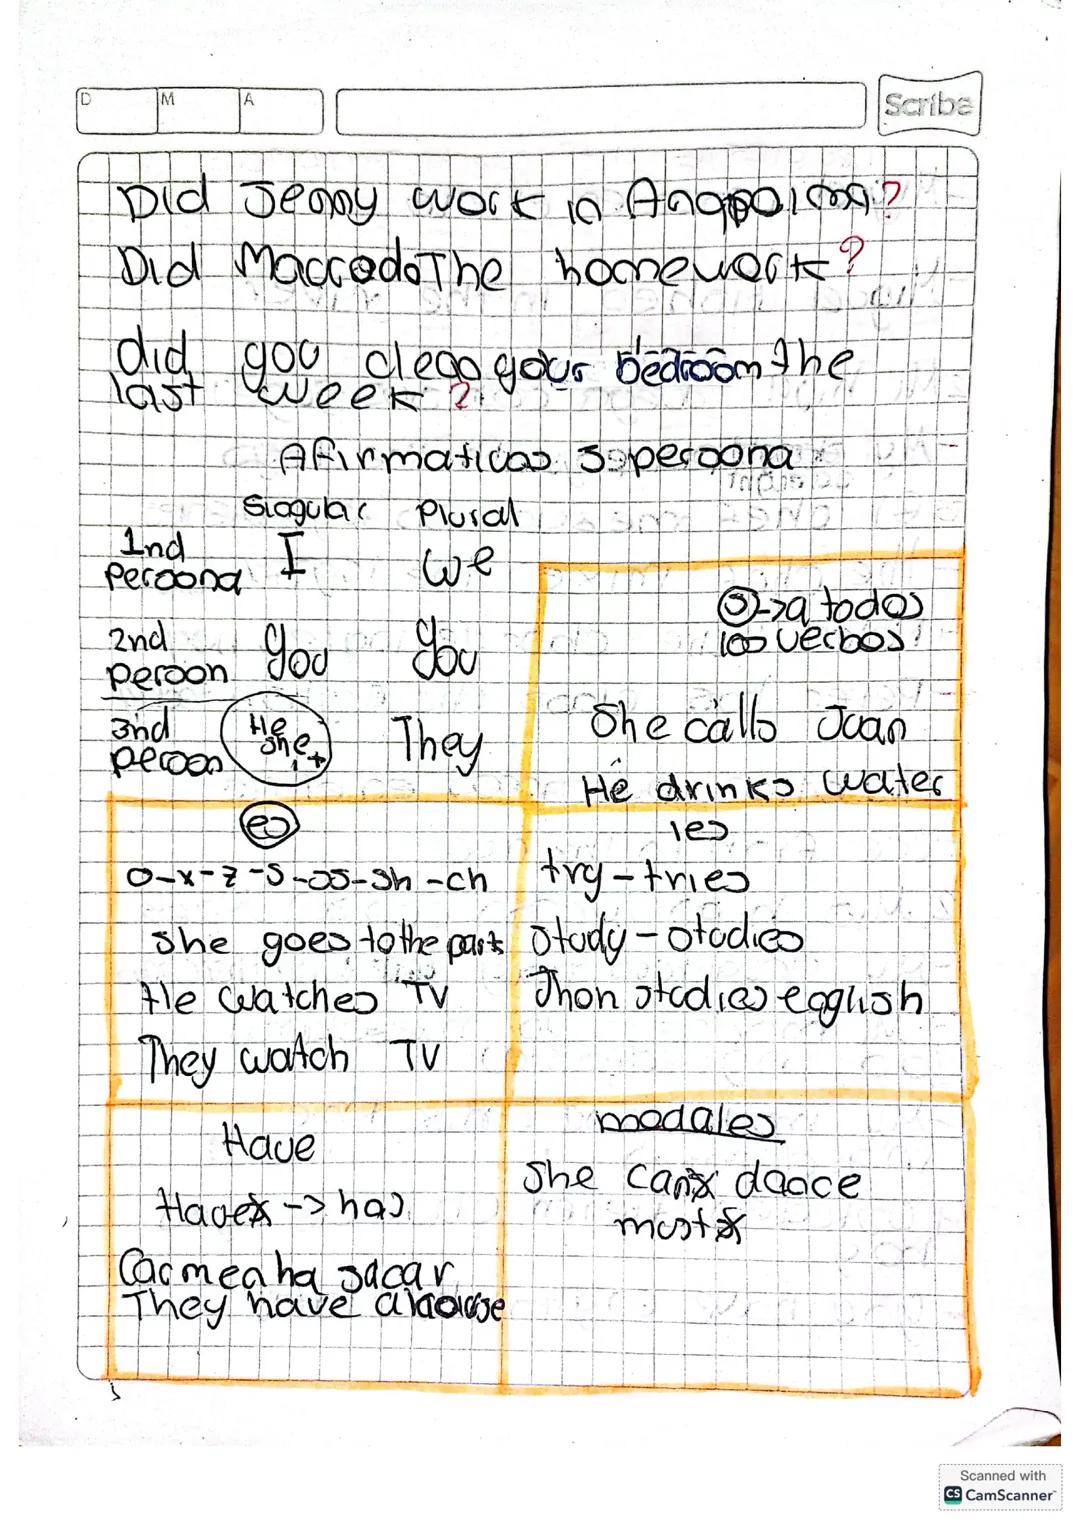 D M A
Scribe
Did Jenny work in Anapoima?
Did Marco do The homework?
did you clean your bedroom the
last week?
Afirmativas 3 persona
Singular Plural
1nd
Persona I we
2nd
person you you
3nd
person He
she
it They
s -> a todos
los verbos
She calls Juan
He drinks water
es
o-x-z-s-ss-sh-ch
she goes to the park
He watches TV
They watch TV
ies
try-tries
study-studies
Jhon studies english
Have
Haves -> has
Carmen ha sacar
They have a
modales
She cans dance
musts
Scanned with
CS CamScanner